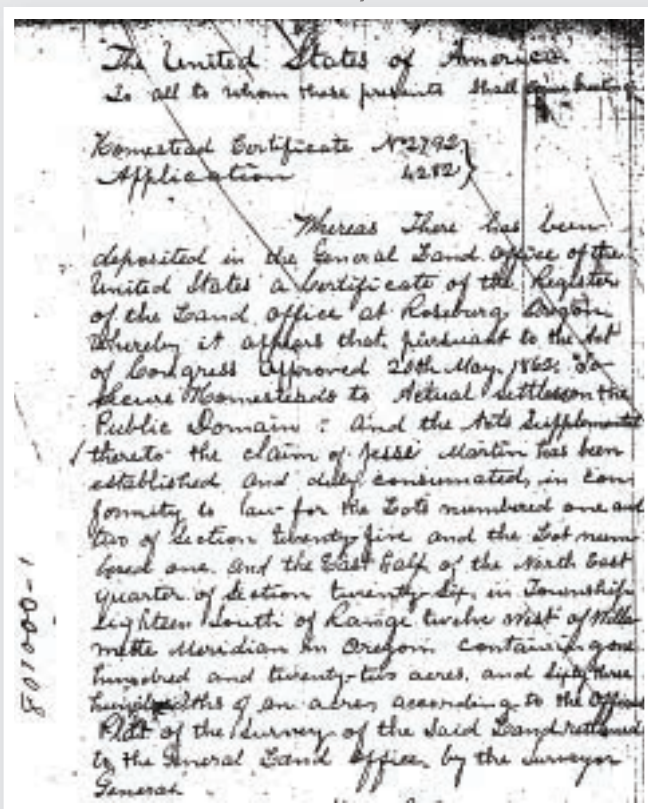 The United States of America.
To all to whom these presents Shall Come Greeting
Homestead Certificate No 2792 }
Application 4282 }
Whereas There has been
deposited in the General Land Office of the
United States a Certificate of the Register
of the Land Office at Roseburg Oregon
Whereby it appears that, pursuant to the Act
of Congress Approved 20th May, 1862, "To
Secure Homesteads to Actual Settlers on the
Public Domain: And the Acts Supplemental
thereto the claim of Jesse Martin has been
established and duly consumated, in con
formity to law for the Lots numbered one and
two of Section twenty-five and the Lot num
bered one, and the East half of the North East
quarter of Section twenty-six, in Township
eighteen South of Range twelve West of Willa
mette Meridian in Oregon containing one
hundred and twenty-two acres, and Sixty three
hundredths of an acre, according to the Official
Plat of the Survey of the Said Land returned
to the General Land Office, by the Surveyor
General
801000-1